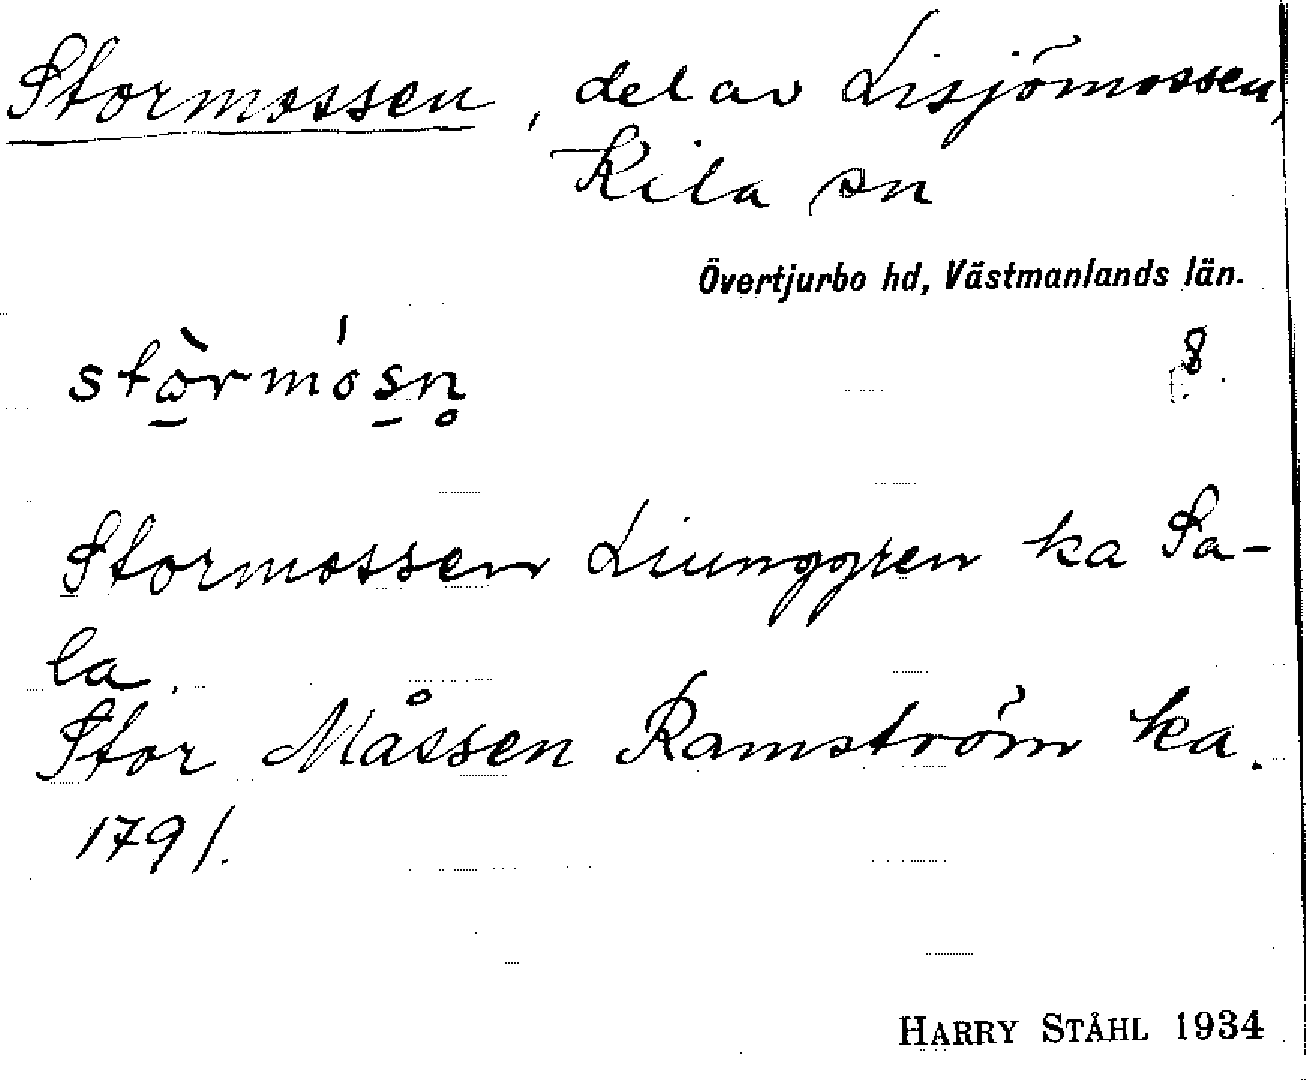 Stormossen, del av Lisjömossen,
Kila sn
Övertjurbo hd, Västmanlands län.
8
stòrmósn̥
Stormossen Liunggren ka Sa-
la.
Stor Måssen Ramström ka.
1791.
HARRY STÅHL 1934